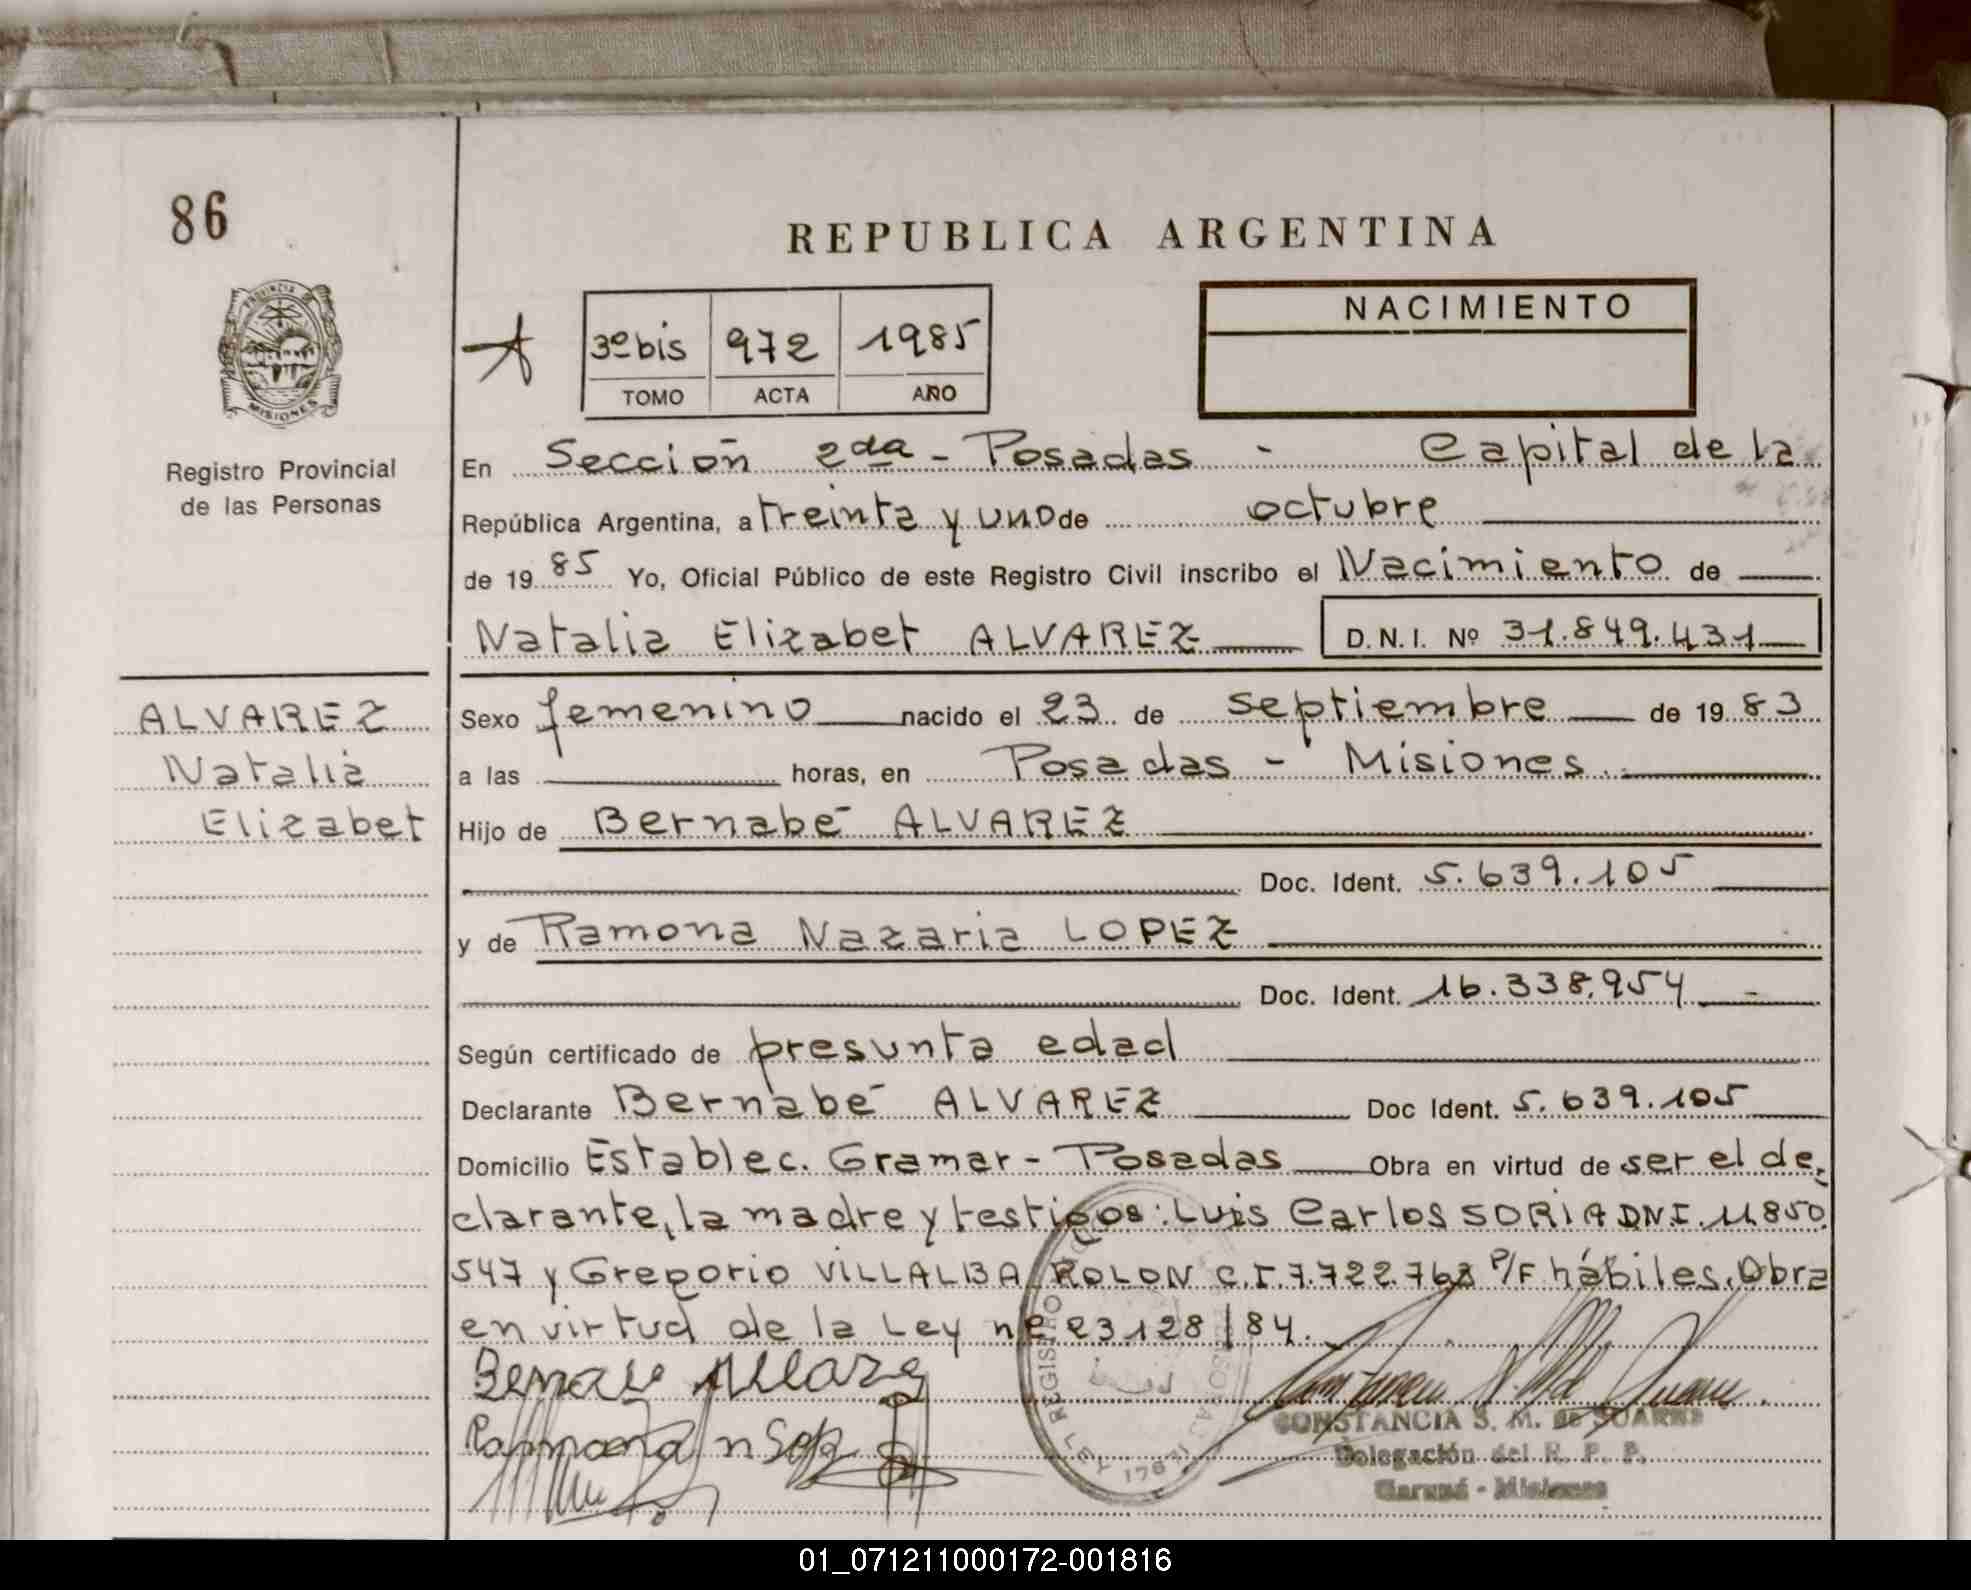 86
REPUBLICA ARGENTINA
PROVINCIA DE MISIONES
3º bis 972 1985
TOMO ACTA AÑO
NACIMIENTO
Registro Provincial
de las Personas
En Sección 2da - Posadas - Capital de la
República Argentina, a treinta y uno de octubre
de 19 85 Yo, Oficial Público de este Registro Civil inscribo el Nacimiento de
Natalia Elizabet ALVAREZ D.N.I. Nº 31.849.431
ALVAREZ
Natalia
Elizabet
Sexo femenino nacido el 23 de septiembre de 19 83
a las horas, en Posadas - Misiones.
Hijo de Bernabé ALVAREZ
Doc. Ident. 5.639.105
y de Ramona Nazaria LOPEZ
Doc. Ident. 16.338.954
Según certificado de presunta edad
Declarante Bernabé ALVAREZ Doc Ident. 5.639.105
Domicilio Establec. Gramar - Posadas Obra en virtud de ser el de-
clarante, la madre y testigos: Luis Carlos SORIA DNI. 11.850.
547 y Gregorio VILLALBA ROLON C.I 7.722.763 P/F hábiles. Obra
en virtud de la Ley nº 23.128/84.
CONSTANCIA S. M. de SUAREZ
Delegación del R. P. P.
Garupá - Misiones
01_071211000172-001816